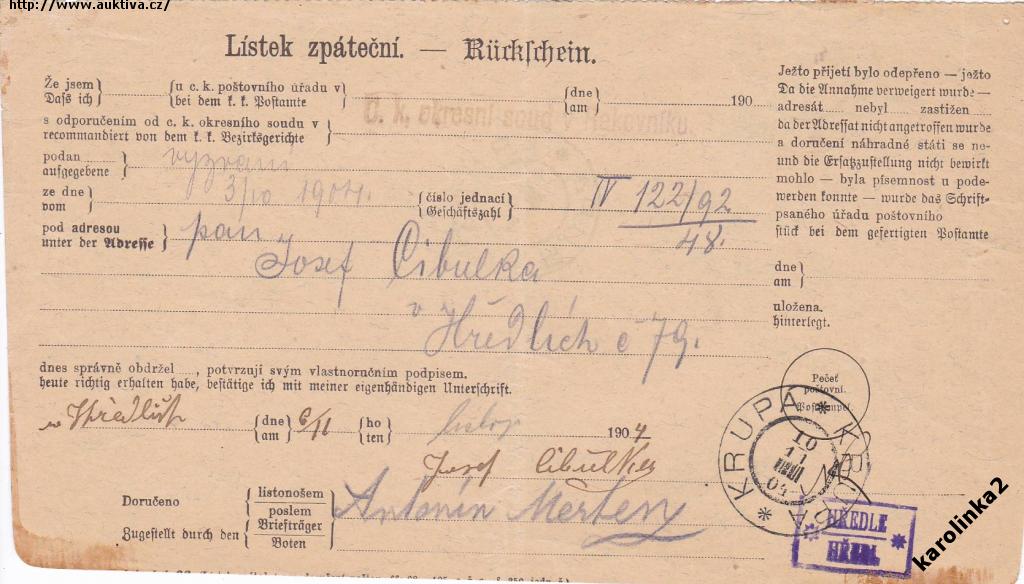 http://www.auktiva.cz/
Lístek zpáteční. — Rückschein.
Že jsem
Dass ich
u c. k. poštovního úřadu v
bei dem k. k. Postamte
dne
am
190
C. k. okresní soud v Rakovníku.
s odporučením od c. k. okresního soudu v
recommandiert von dem k. k. Bezirksgerichte
podan
aufgegebene
vyzvání
ze dne
vom
3/10 1904.
číslo jednací
Geschäftszahl
IV 122/92
48.
pod adresou
unter der Adresse
pan
Josef Cibulka
v Hředlích č 79.
dnes správně obdržel , potvrzuji svým vlastnoručním podpisem.
heute richtig erhalten habe, bestätige ich mit meiner eigenhändigen Unterschrift.
dne
am
ho
ten
1904
Josef Cibulka
Doručeno
Zugestellt durch den
listonošem
poslem
Briefträger
Boten
Antonín
Ježto přijetí bylo odepřeno — ježto
Da die Annahme verweigert wurde —
adresát nebyl zastižen
da der Adressat nicht angetroffen wurde
a doručení náhradné státi se ne-
und die Ersatzzustellung nicht bewirkt
mohlo — byla písemnost u pode-
werden konnte — wurde das Schrift-
psaného úřadu poštovního
stück bei dem gefertigten Postamte
dne
am
uložena.
hinterlegt.
Pečeť
poštovní.
Poststempel.
* KRUPÁ * KRUPA
10
11
04
* HŘEDLE *
HŘEDL
karolinka2